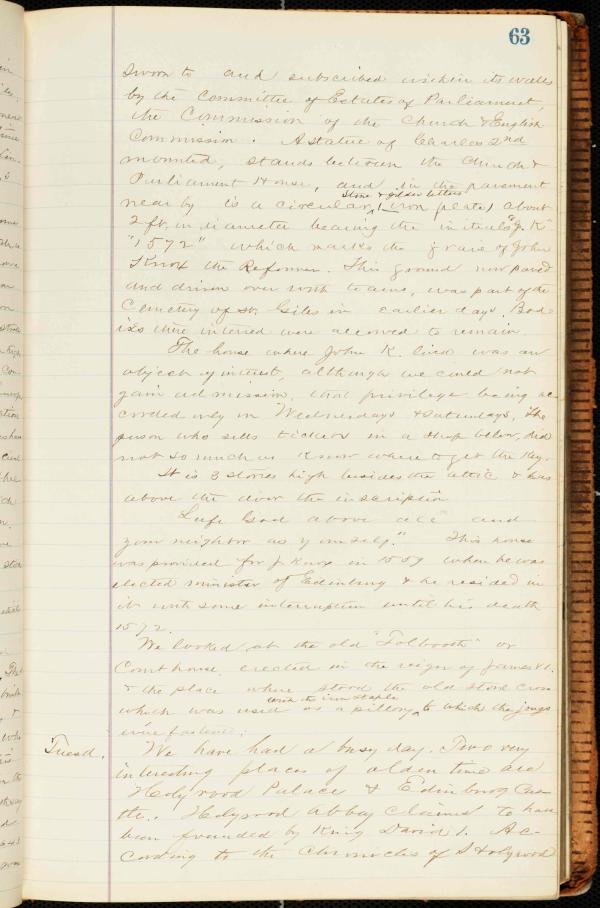 63
Sworn to and subscribed within its walls
by the Committee of Estates of Parliament,
the Commission of the Church & English
Commission. A statue of Charles 2nd
mounted, stands between the Church &
Parliament House, and in the pavement
stone & gilded letters
near by is a circular, (iron plate) about
2 ft. in diameter bearing the initials "J. K"
"1572" which marks the grave of John
Knox the Reformer. This ground now paved
and driven over with teams, was part of the
Cemetery of St. Giles in earlier days. Bod-
ies there interred were allowed to remain.
The house where John K. lived was an
object of interest, although we could not
gain admission, that privilege being ac-
corded only on Wednesdays & Saturdays. The
person who sells tickets in a shop below, did
not so much as know where to get the key.
It is 3 stories high besides the attic & has
above the door the inscription
"Lufe God above all and
your neighbor as yourself." This house
was provided for J. Knox in 1559 when he was
elected minister of Edinburg & he resided in
it with some interruption until his death
1572.
We looked at the old "Tolbooth" or
Court house, erected in the reign of James
& the place where stood the old stone cross
with the iron staple
which was used as a pillory, to which the jougs
were fastened.
Tuesd. We have had a busy day. Two very
interesting places of olden time are
Holyrood Palace & Edinburg Cas-
tle. Holyrood Abbey claims to have
been founded by King David 1. Ac-
cording to the Chronicles of Holyrood